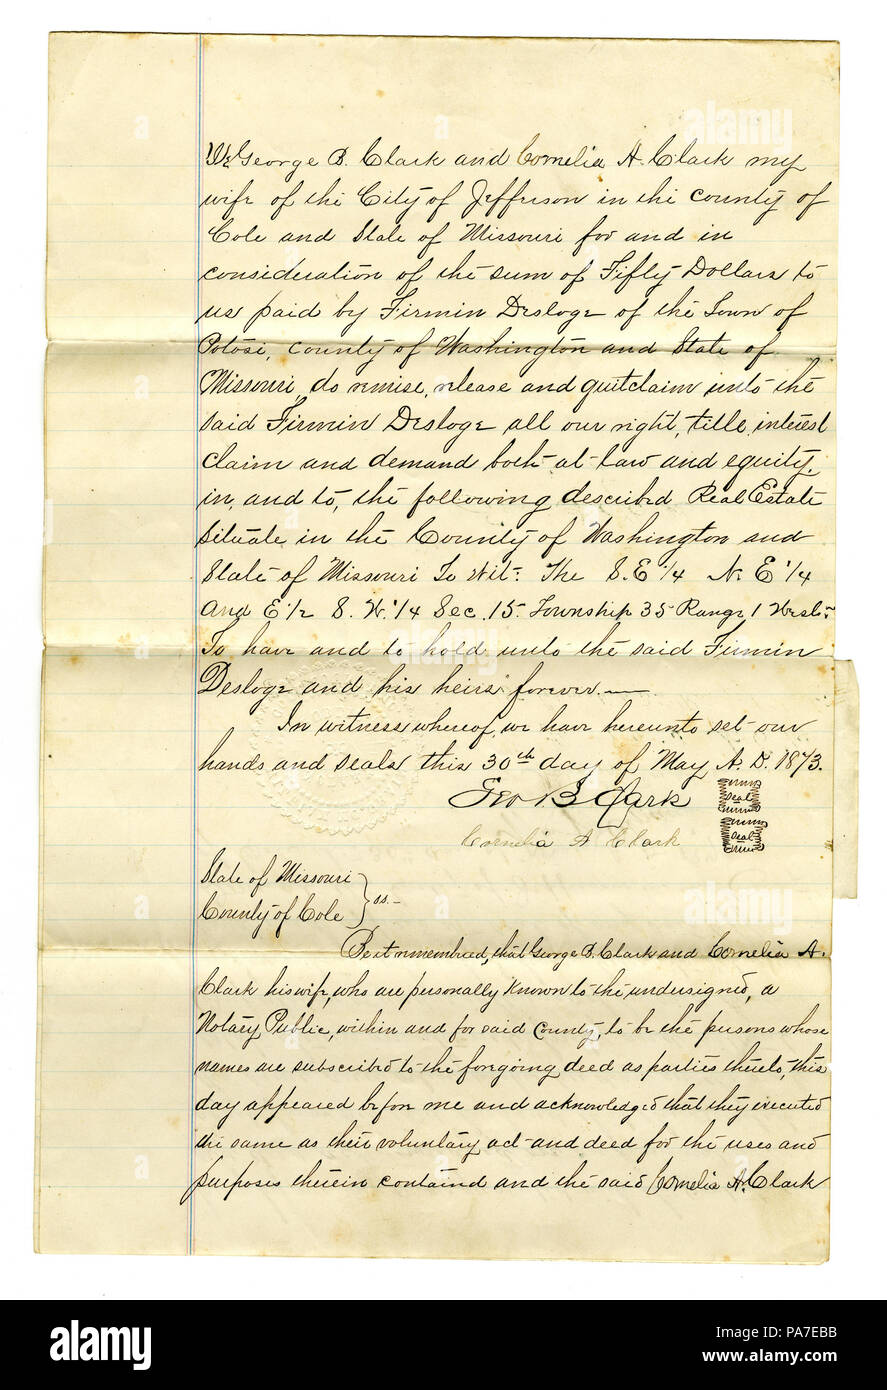 We George B. Clark and Cornelia A. Clark my
wife of the City of Jefferson in the county of
Cole and State of Missouri for and in
consideration of the sum of Fifty Dollars to
us paid by Firmin Desloge of the Town of
Potosi, County of Washington and State of
Missouri, do remise, release and quitclaim unto the
said Firmin Desloge all our right, title interest
claim and demand both at law and equity,
in, and to, the following described Real Estate
Situate in the County of Washington and
State of Missouri To Wit: The S.E 1/4 N. E 1/4
And E 1/2 S. W. 1/4 Sec. 15. Township 35 Range 1 West.
To have and to hold unto the said Firmin
Desloge and his heirs forever.—
In witness whereof, we have hereunto set our
hands and seals this 30th day of May A. D. 1873.
Geo B Clark Seal
Cornelia A Clark Seal
State of Missouri
County of Cole } ss.-
Be it remembered, that George B. Clark and Cornelia A.
Clark his wife, who are personally known to the undersigned, a
Notary Public, within and for said County, to be the persons whose
names are subscribed to the foregoing deed as parties thereto, this
day appeared before me and acknowledged that they executed
the same as their voluntary act and deed for the uses and
purposes therein contained and the said Cornelia A. Clark
alamy
Image ID: PA7EBB
www.alamy.com